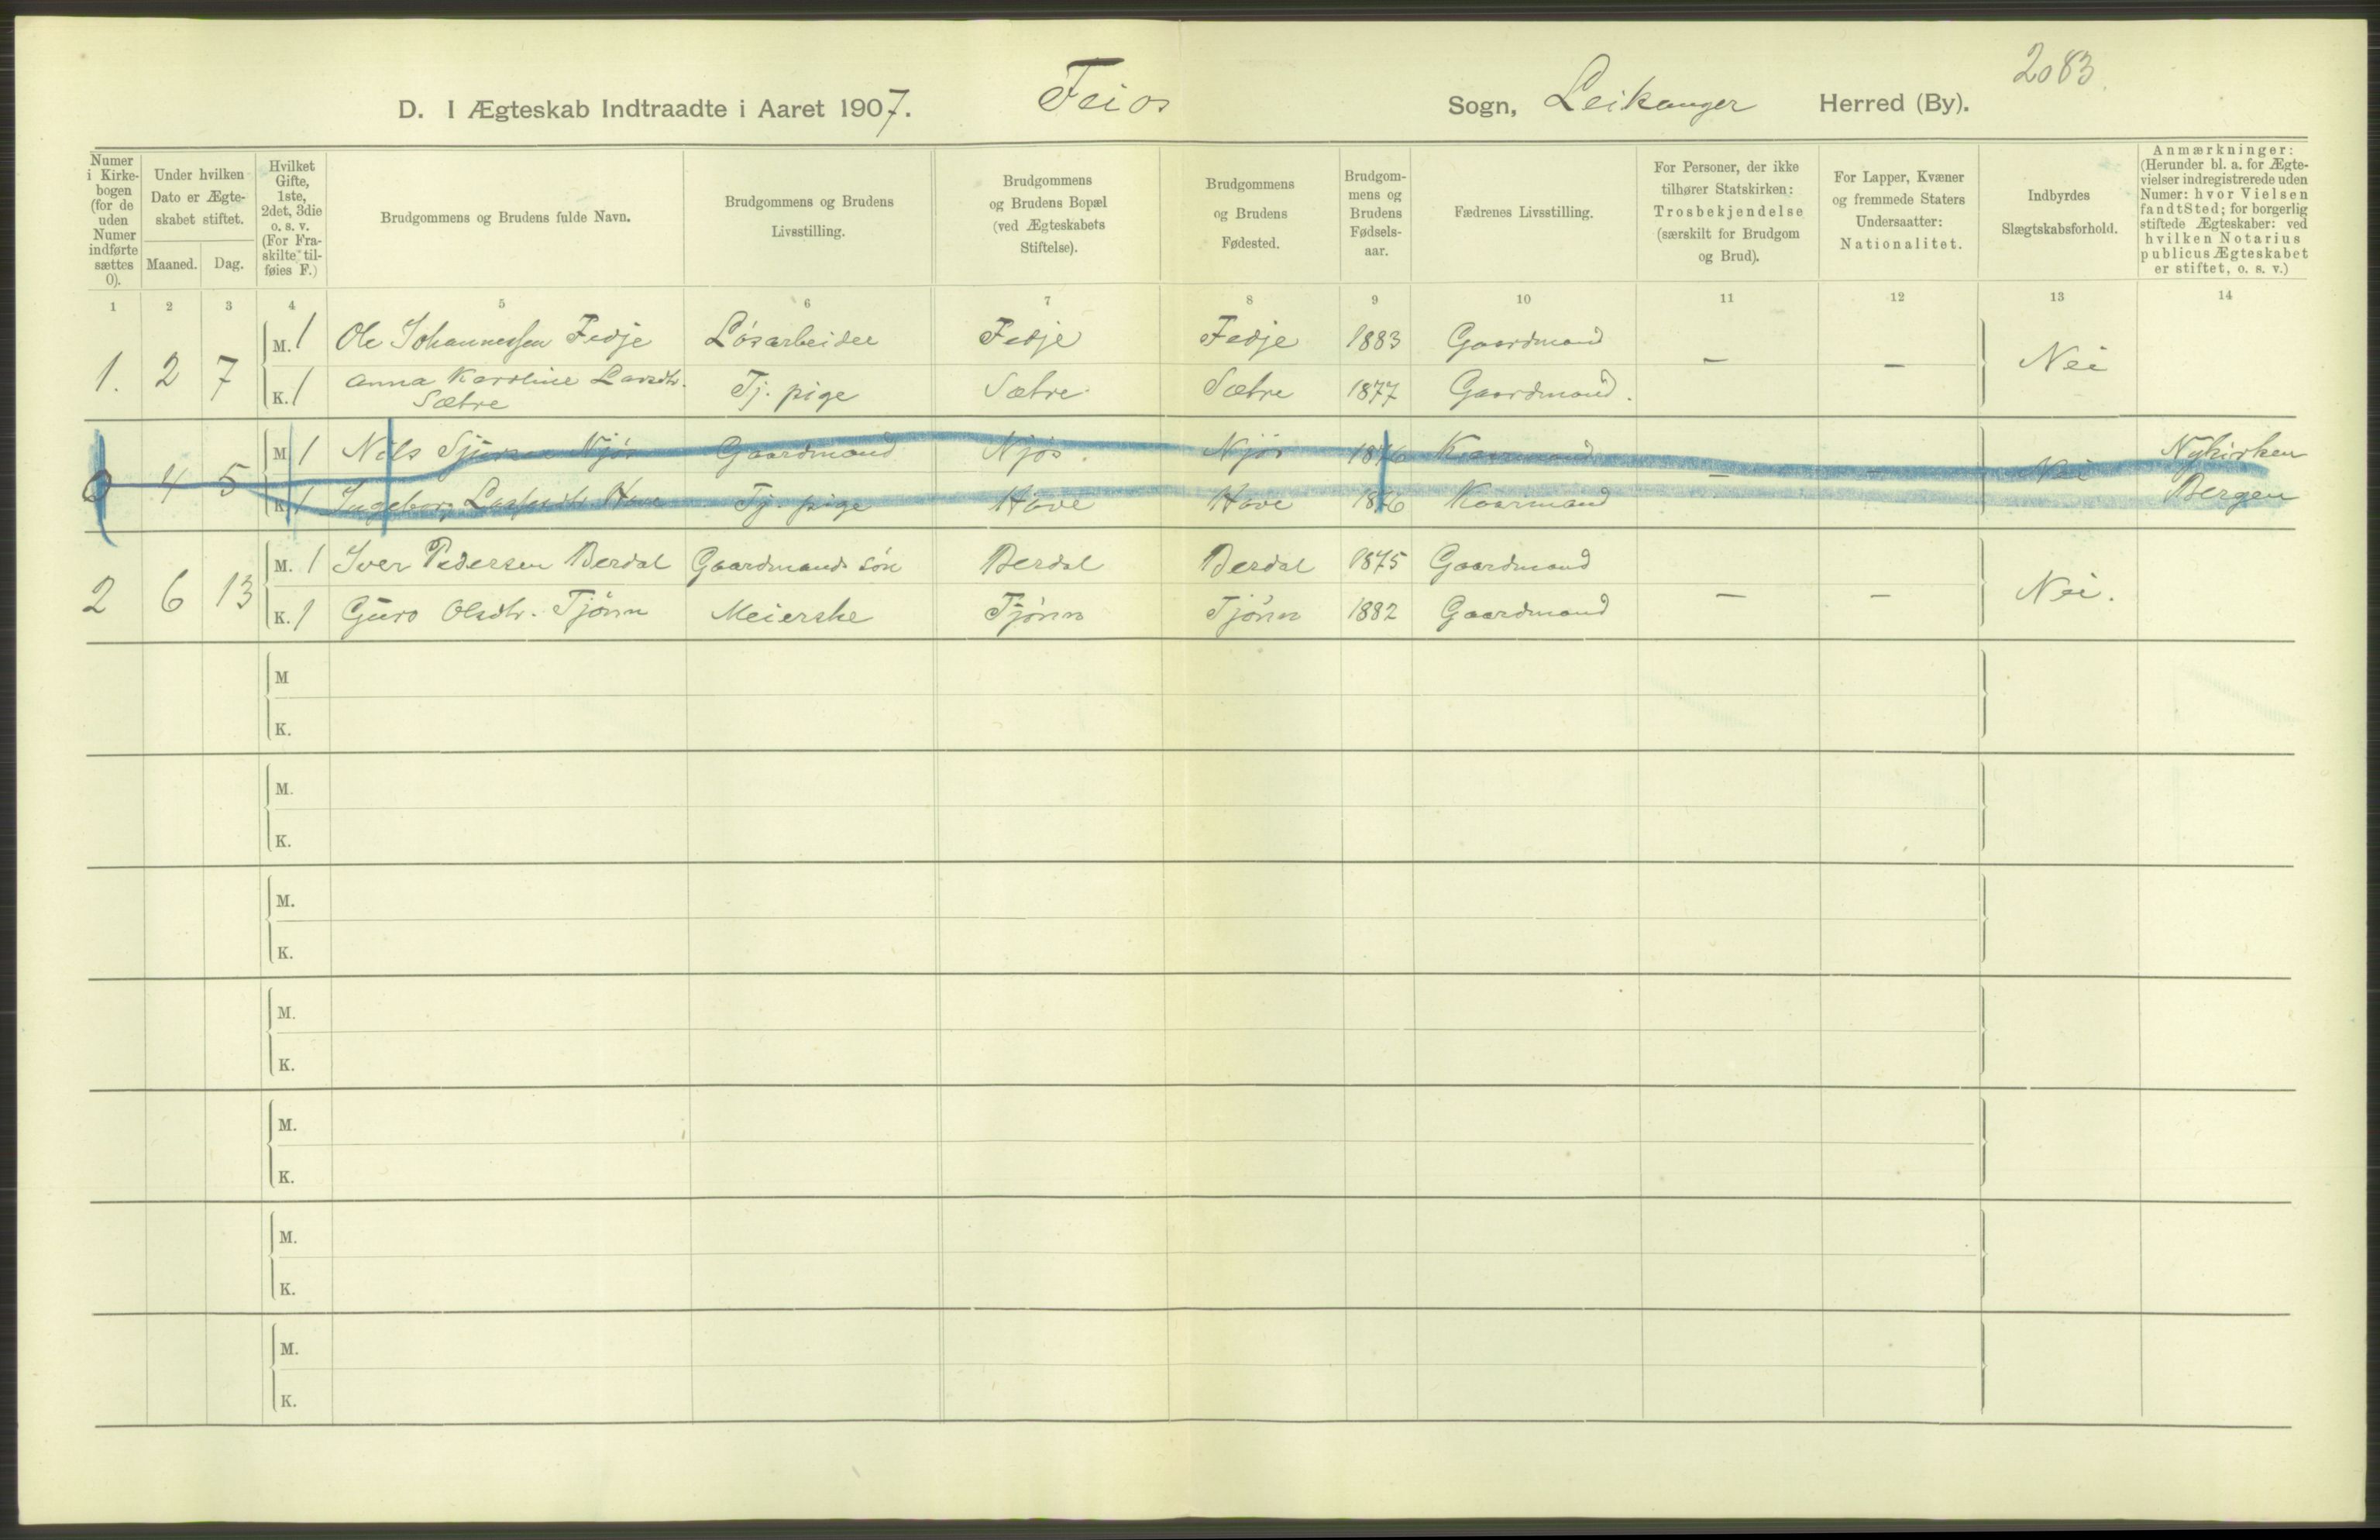 2083.
D. I Ægteskab Indtraadte i Aaret 1907. Feios Sogn, Leikanger Herred (By).
Numer i Kirkebogen (for de uden Numer indførte sættes 0).
Under hvilken Dato er Ægteskabet stiftet.
Maaned. Dag.
Hvilket Gifte, 1ste, 2det, 3die o. s. v. (For Fraskilte tilføies F.)
Brudgommens og Brudens fulde Navn.
Brudgommens og Brudens Livsstilling.
Brudgommens og Brudens Bopæl (ved Ægteskabets Stiftelse).
Brudgommens og Brudens Fødested.
Brudgommens og Brudens Fødselsaar.
Fædrenes Livsstilling.
For Personer, der ikke tilhører Statskirken: Trosbekjendelse (særskilt for Brudgom og Brud).
For Lapper, Kvæner og fremmede Staters Undersaatter: Nationalitet.
Indbyrdes Slægtskabsforhold.
Anmærkninger: (Herunder bl. a. for Ægtevielser indregistrerede uden Numer: hvor Vielsen fandt Sted; for borgerlig stiftede Ægteskaber: ved hvilken Notarius publicus Ægteskabet er stiftet, o. s. v.)
1 2 3 4 5 6 7 8 9 10 11 12 13 14
1. 2 7 M. 1 Ole Johannessen Fedje Løsarbeider Fedje Fedje 1883 Gaardmand — — Nei
K. 1 Anna Karoline Larsdtr. Sætre Tj. pige Sætre Sætre 1877 Gaardmand.
0 4 5 M. 1 Nils Sjursen Njøs Gaardmand Njøs. Njøs 1876 Kaarmand — — Nei Nykirken
K. 1 Ingeborg Hove Tj. pige Hove Hove 1876 Kaarmand Bergen
2 6 13 M. 1 Iver Pedersen Berdal Gaardmands søn Berdal Berdal 1875 Gaardmand — — Nei.
K. 1 Guro Olsdtr. Tjønn Meierske Tjønn Tjønn 1882 Gaardmand
M
K.
M.
K.
M.
K.
M.
K.
M.
K.
M.
K.
M.
K.